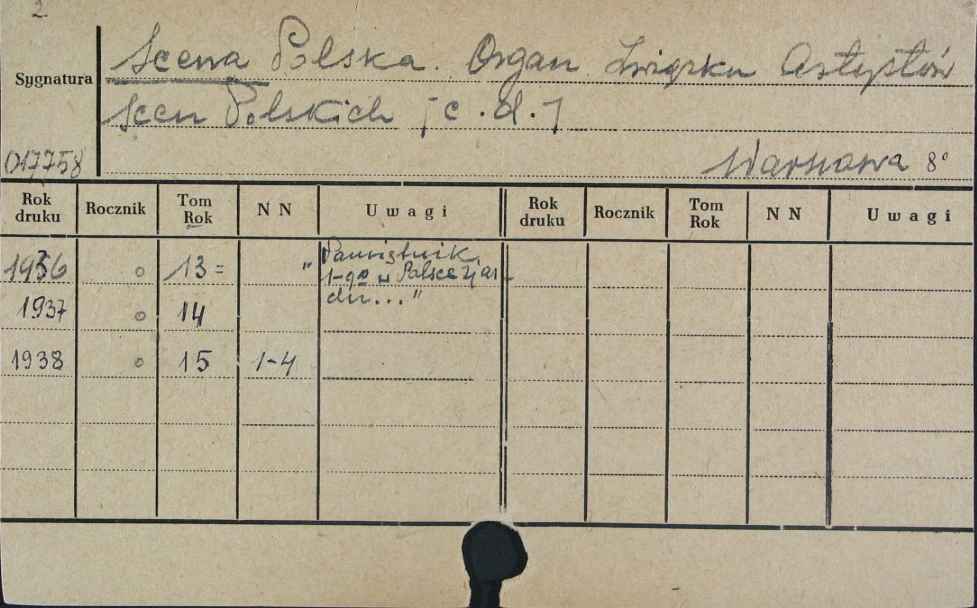 2.
Sygnatura
Scena Polska. Organ Związku Artystów
Scen Polskich [c.d.]
017758
Warszawa 8°
Rok druku Rocznik Tom Rok N N Uwagi Rok druku Rocznik Tom Rok N N Uwagi
1936 o 13 = "Pamiętnik
1-go w Polsce Zjaz-
du..."
1937 o 14
1938 o 15 1-4